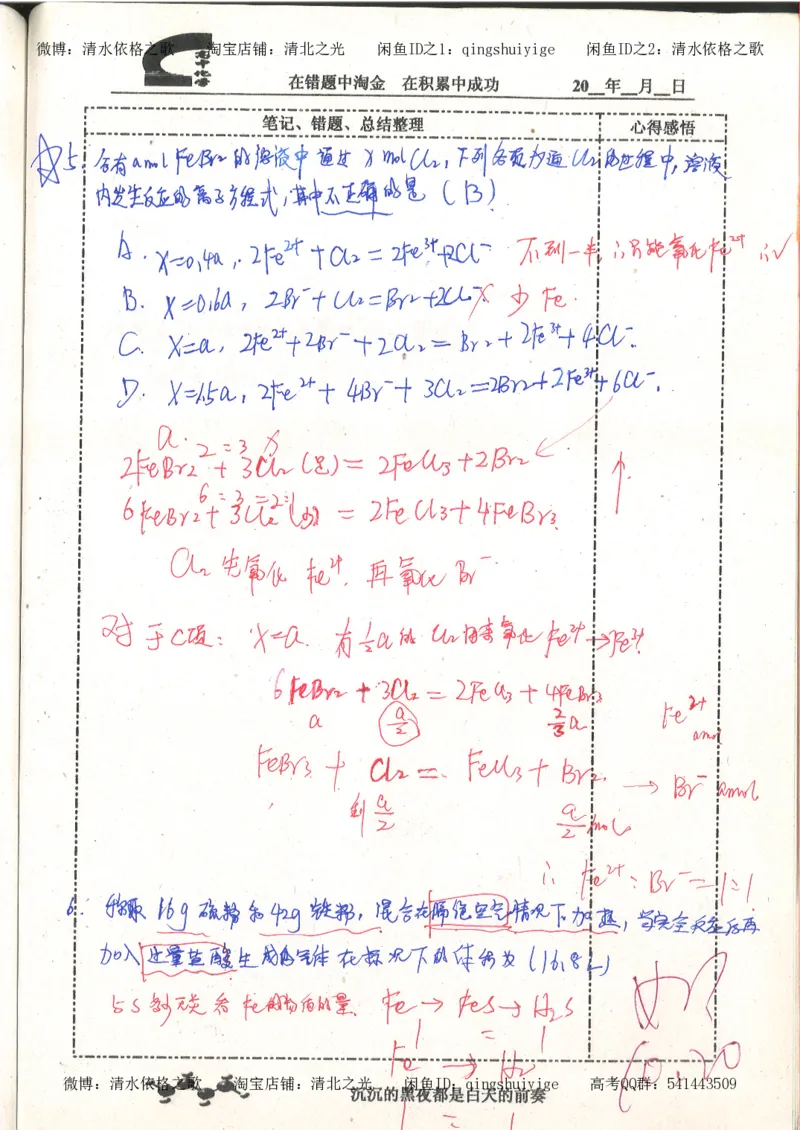 微博：清水依格之歌 淘宝店铺：清北之光 闲鱼ID之1：qingshuiyige 闲鱼ID之2：清水依格之歌
在错题中淘金 在积累中成功 20__年__月__日
笔记、错题、总结整理 心得感悟
5. 含有a mol FeBr₂的溶液中通过 x mol Cl₂，下列各项为通Cl₂的过程中，溶液
内发生反应的离子方程式，其中不正确的是（B）
A. x=0.4a, 2Fe²⁺+Cl₂=2Fe³⁺+2Cl⁻ 不到一半∴只能氧化Fe²⁺ ∴√
B. x=0.6a, 2Br⁻+Cl₂=Br₂+2Cl⁻ × 少Fe.
C. x=a, 2Fe²⁺+2Br⁻+2Cl₂=Br₂+2Fe³⁺+4Cl⁻.
D. x=1.5a, 2Fe²⁺+4Br⁻+3Cl₂=2Br₂+2Fe³⁺+6Cl⁻.
a. 2=3 x
2FeBr₂+3Cl₂(足)=2FeCl₃+2Br₂
6=3=2:1
6FeBr₂+3Cl₂(少)=2FeCl₃+4FeBr₃
Cl₂先氧化Fe²⁺. 再氧化Br⁻
对于C项：x=a. 有½a的Cl₂ 氧化Fe²⁺→Fe³⁺
6FeBr₂+3Cl₂=2FeCl₃+4FeBr₃
a a/2 2/3 a
Fe²⁺
amol
FeBr₃+Cl₂=FeCl₃+Br₂
→Br⁻ amol
剩 a/2 a/2 mol
∴Fe²⁺:Br⁻=1:1
6. 称取16g硫粉和42g铁粉，混合在隔绝空气情况下加热，当完全反应后再
加入过量盐酸生成的气体在标况下的体积为（16.8L）
与S多少无关 看Fe的物质的量. Fe→FeS→H₂S
1 = 1
Fe→H₂
1 = 1
微博：清水依格之歌 淘宝店铺：清北之光 闲鱼ID：qingshuiyige 高考QQ群：541443509
沉沉的黑夜都是白天的前奏